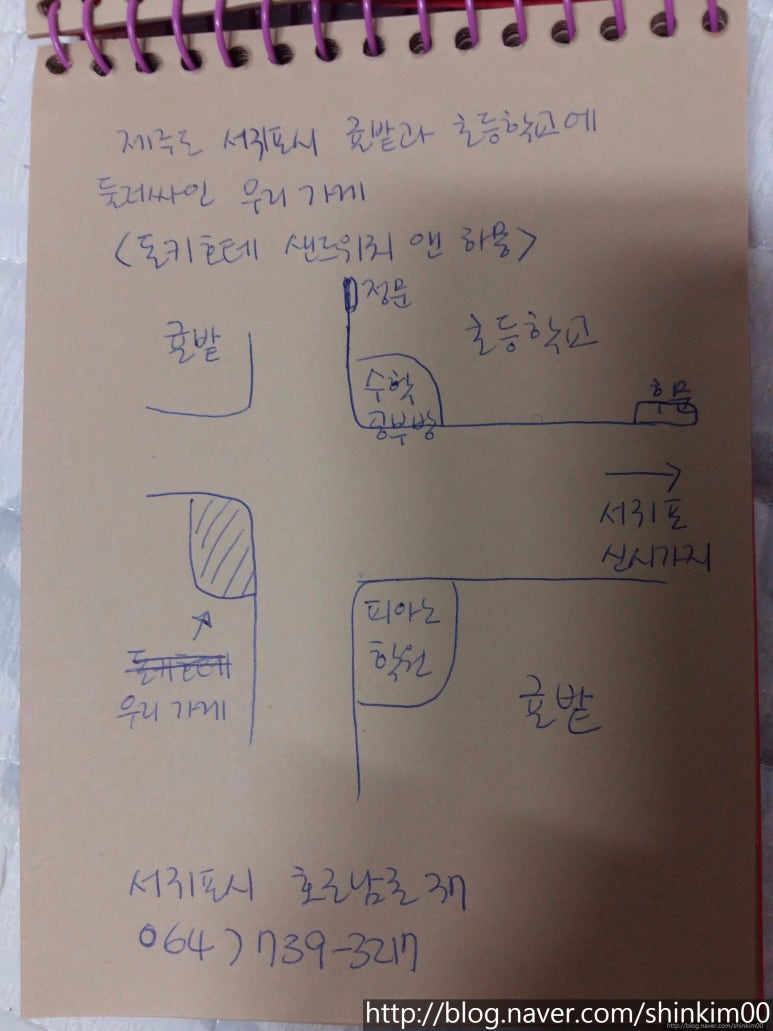 제주도 서귀포시 귤밭과 초등학교에
둘러싸인 우리 가게
<돈키호테 샌드위치 앤 하몽>
정문
귤밭
초등학교
수학
공부방
후문
→
서귀포
신시가지
피아노
학원
돈키호테
우리 가게
귤밭
서귀포시 호근남로 37
064) 739-3217
http://blog.naver.com/shinkim00